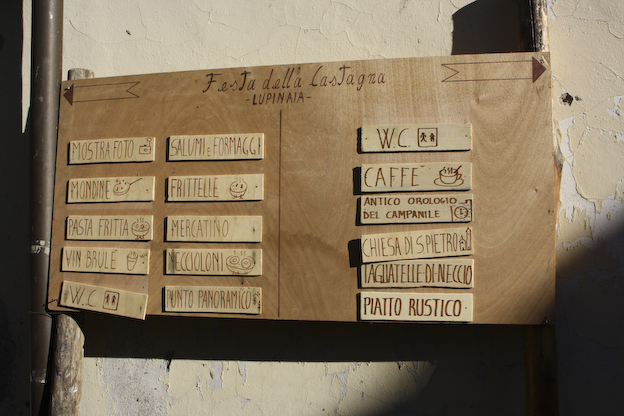 Festa della Castagna
-LUPINAIA-
MOSTRA FOTO
MONDINE
PASTA FRITTA
VIN BRULÈ
W.C.
SALUMI E FORMAGGI
FRITTELLE
MERCATINO
NECCIOLONI
PUNTO PANORAMICO
W.C.
CAFFE'
ANTICO OROLOGIO
DEL CAMPANILE
CHIESA DI S PIETRO
TAGLIATELLE DI NECCIO
PIATTO RUSTICO